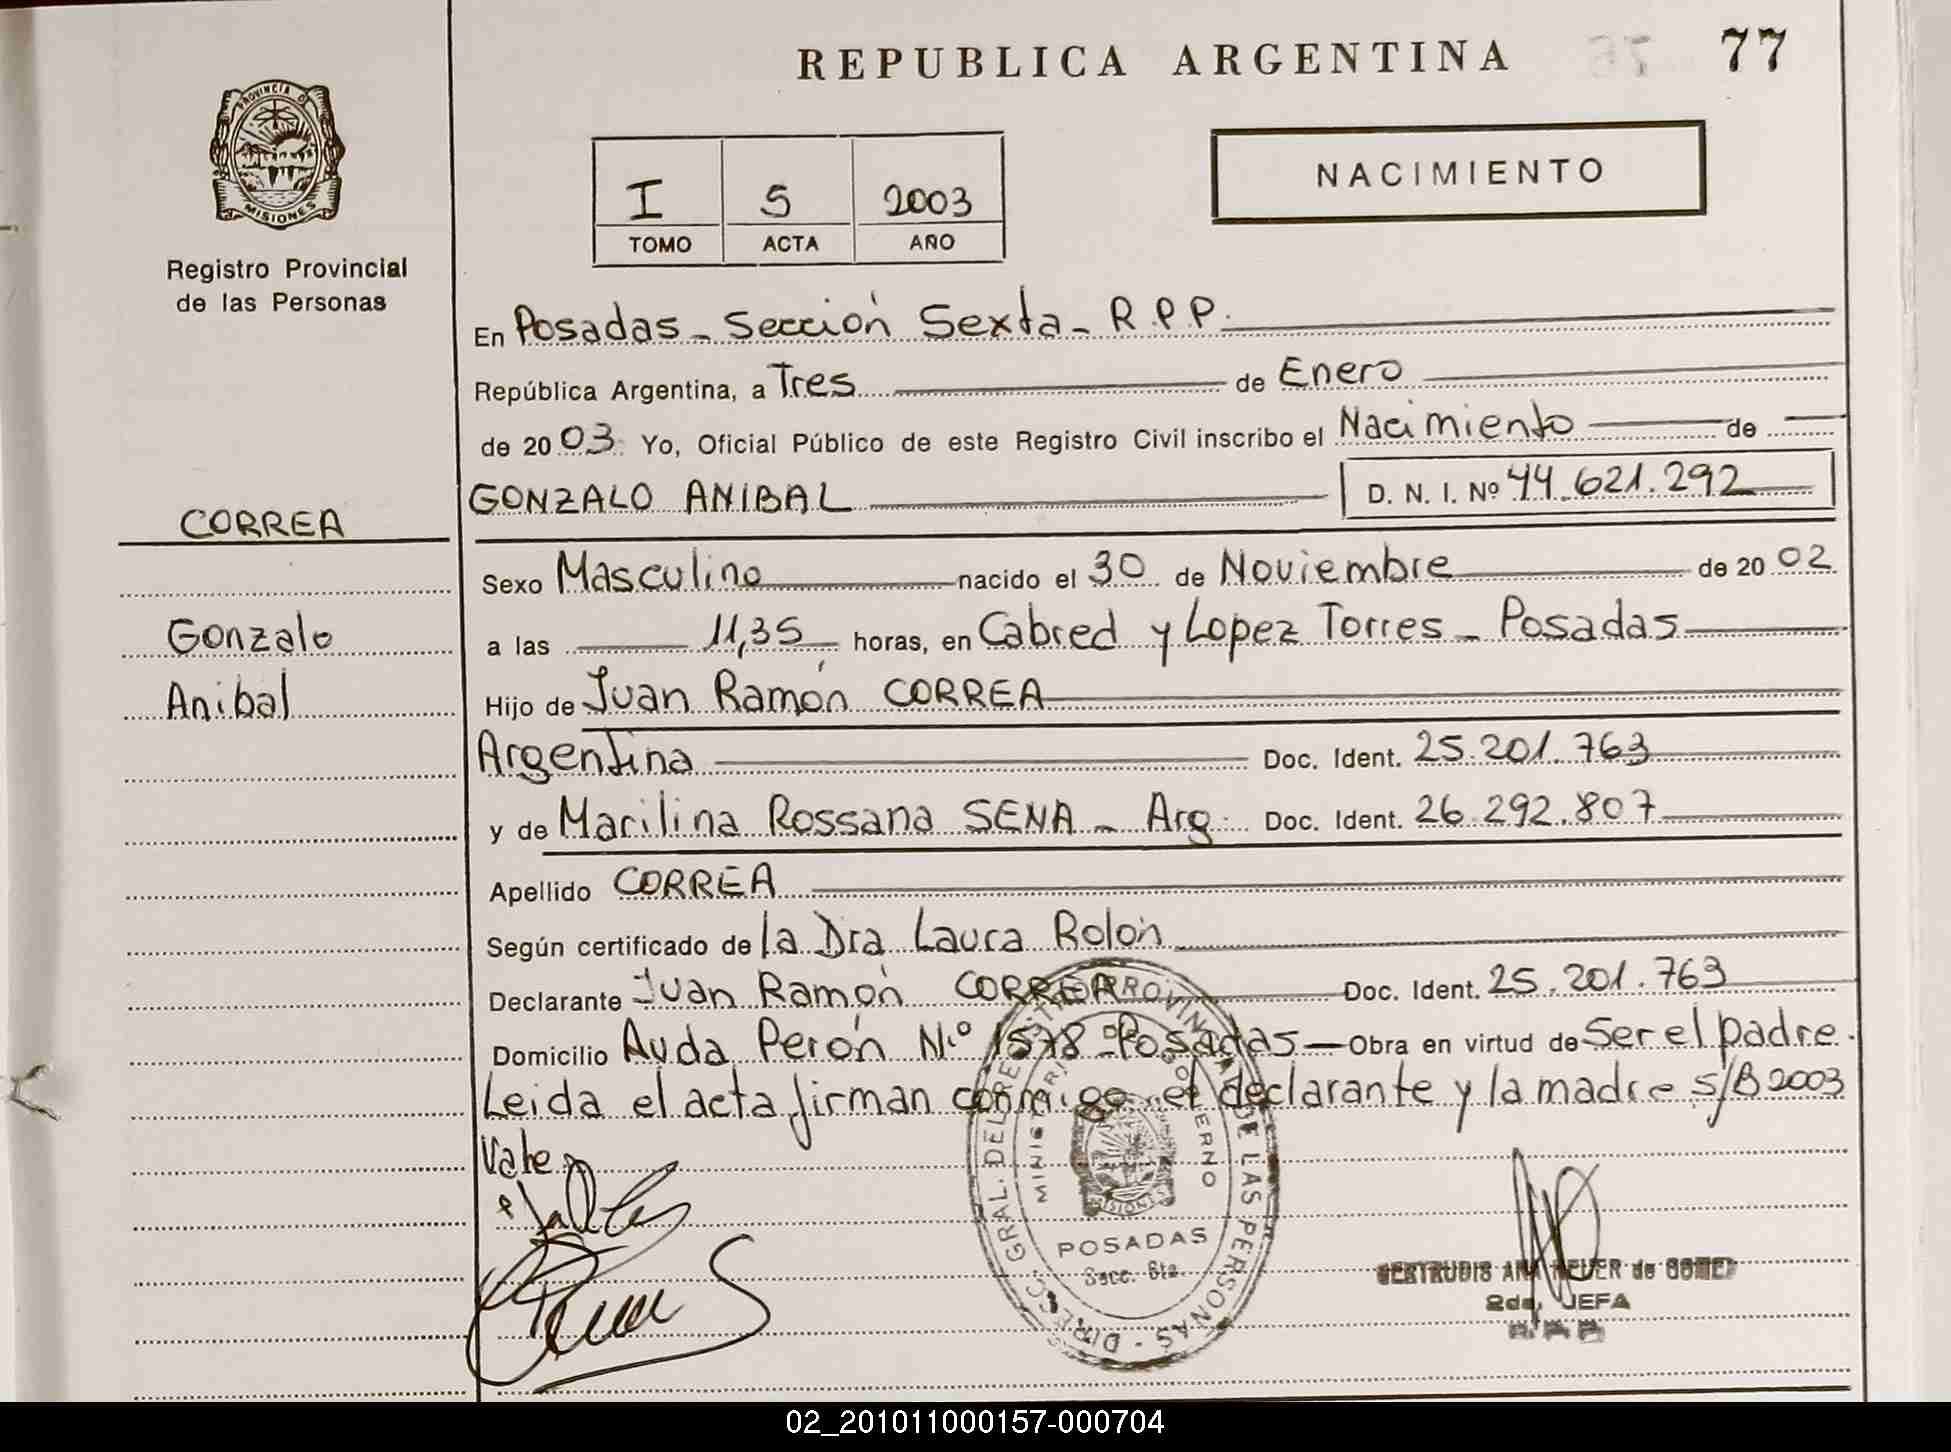 REPUBLICA ARGENTINA
77
PROVINCIA D
MISIONES
Registro Provincial
de las Personas
I S 2003
TOMO ACTA AÑO
NACIMIENTO
En Posadas - Sección Sexta - R.P.P.
República Argentina, a Tres de Enero
de 20 03 Yo, Oficial Público de este Registro Civil inscribo el Nacimiento de
CORREA
GONZALO ANIBAL D. N. I. Nº 44.621.292
Sexo Masculino nacido el 30 de Noviembre de 20 02
Gonzalo
a las 11,35 horas, en Cabred y Lopez Torres - Posadas
Anibal
Hijo de Juan Ramón CORREA
Argentina Doc. Ident. 25.201.763
y de Marilina Rossana SENA - Arg. Doc. Ident. 26.292.807
Apellido CORREA
Según certificado de la Dra Laura Rolón
Declarante Juan Ramón CORREA Doc. Ident. 25.201.763
Domicilio Avda Perón Nº 1578 - Posadas - Obra en virtud de Ser el padre.
Leida el acta firman conmigo el declarante y la madre S/B 2003
Vale
DIRECC. GRAL. DEL REGISTRO PROVINCIAL DE LAS PERSONAS
MINISTERIO DE GOBIERNO
MISIONES
POSADAS
Secc. 6ta.
GERTRUDIS de
2da. JEFA
02_201011000157-000704